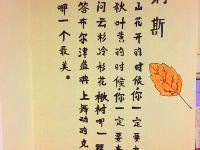 斯
山花开的时候,你一定要
秋叶黄的时候,你一定要
问云杉冷杉花楸树哪一
答布尔津盛典上舞动的
哪一个最美。